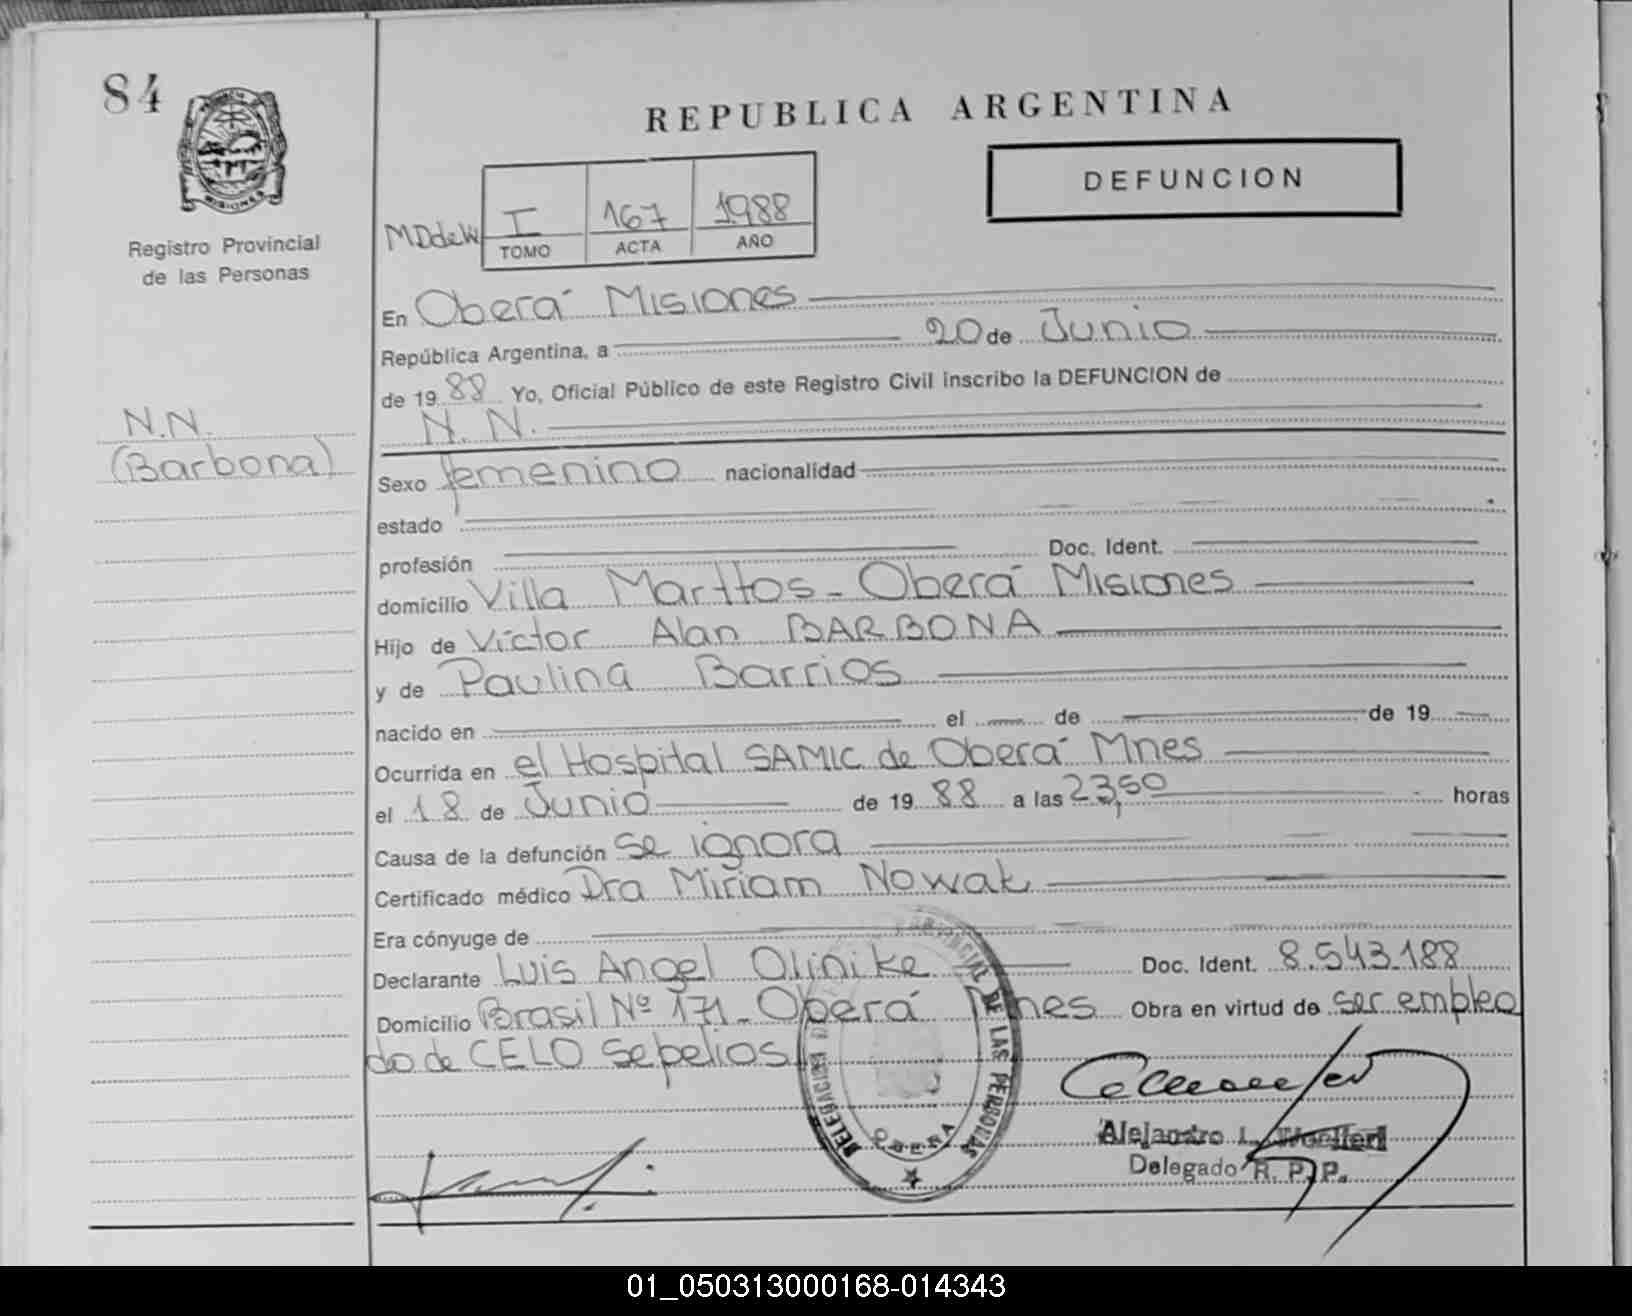 84
MISIONES
Registro Provincial
de las Personas
N.N.
(Barbona)
REPUBLICA ARGENTINA
DEFUNCION
MDdeW I 167 1988
TOMO ACTA AÑO
En Oberá Misiones
República Argentina, a 20 de Junio
de 1988 Yo, Oficial Público de este Registro Civil inscribo la DEFUNCION de
N. N.
Sexo femenino nacionalidad
estado
profesión Doc. Ident.
domicilio Villa Marttos - Oberá Misiones
Hijo de Víctor Alan BARBONA
y de Paulina Barrios
nacido en el de de 19
Ocurrida en el Hospital SAMIC de Oberá Mnes
el 18 de Junio de 1988 a las 23,50 horas
Causa de la defunción se ignora
Certificado médico Dra Miriam Nowak
Era cónyuge de
Declarante Luis Angel Olinike Doc. Ident. 8.543.188
Domicilio Brasil Nº 171 - Oberá Mnes Obra en virtud de ser emplea
do de CELO Sepelios
DELEGACION PROVINCIAL DE LAS PERSONAS
OBERA
Alejandro L.
Delegado R. P. P.
01_050313000168-014343